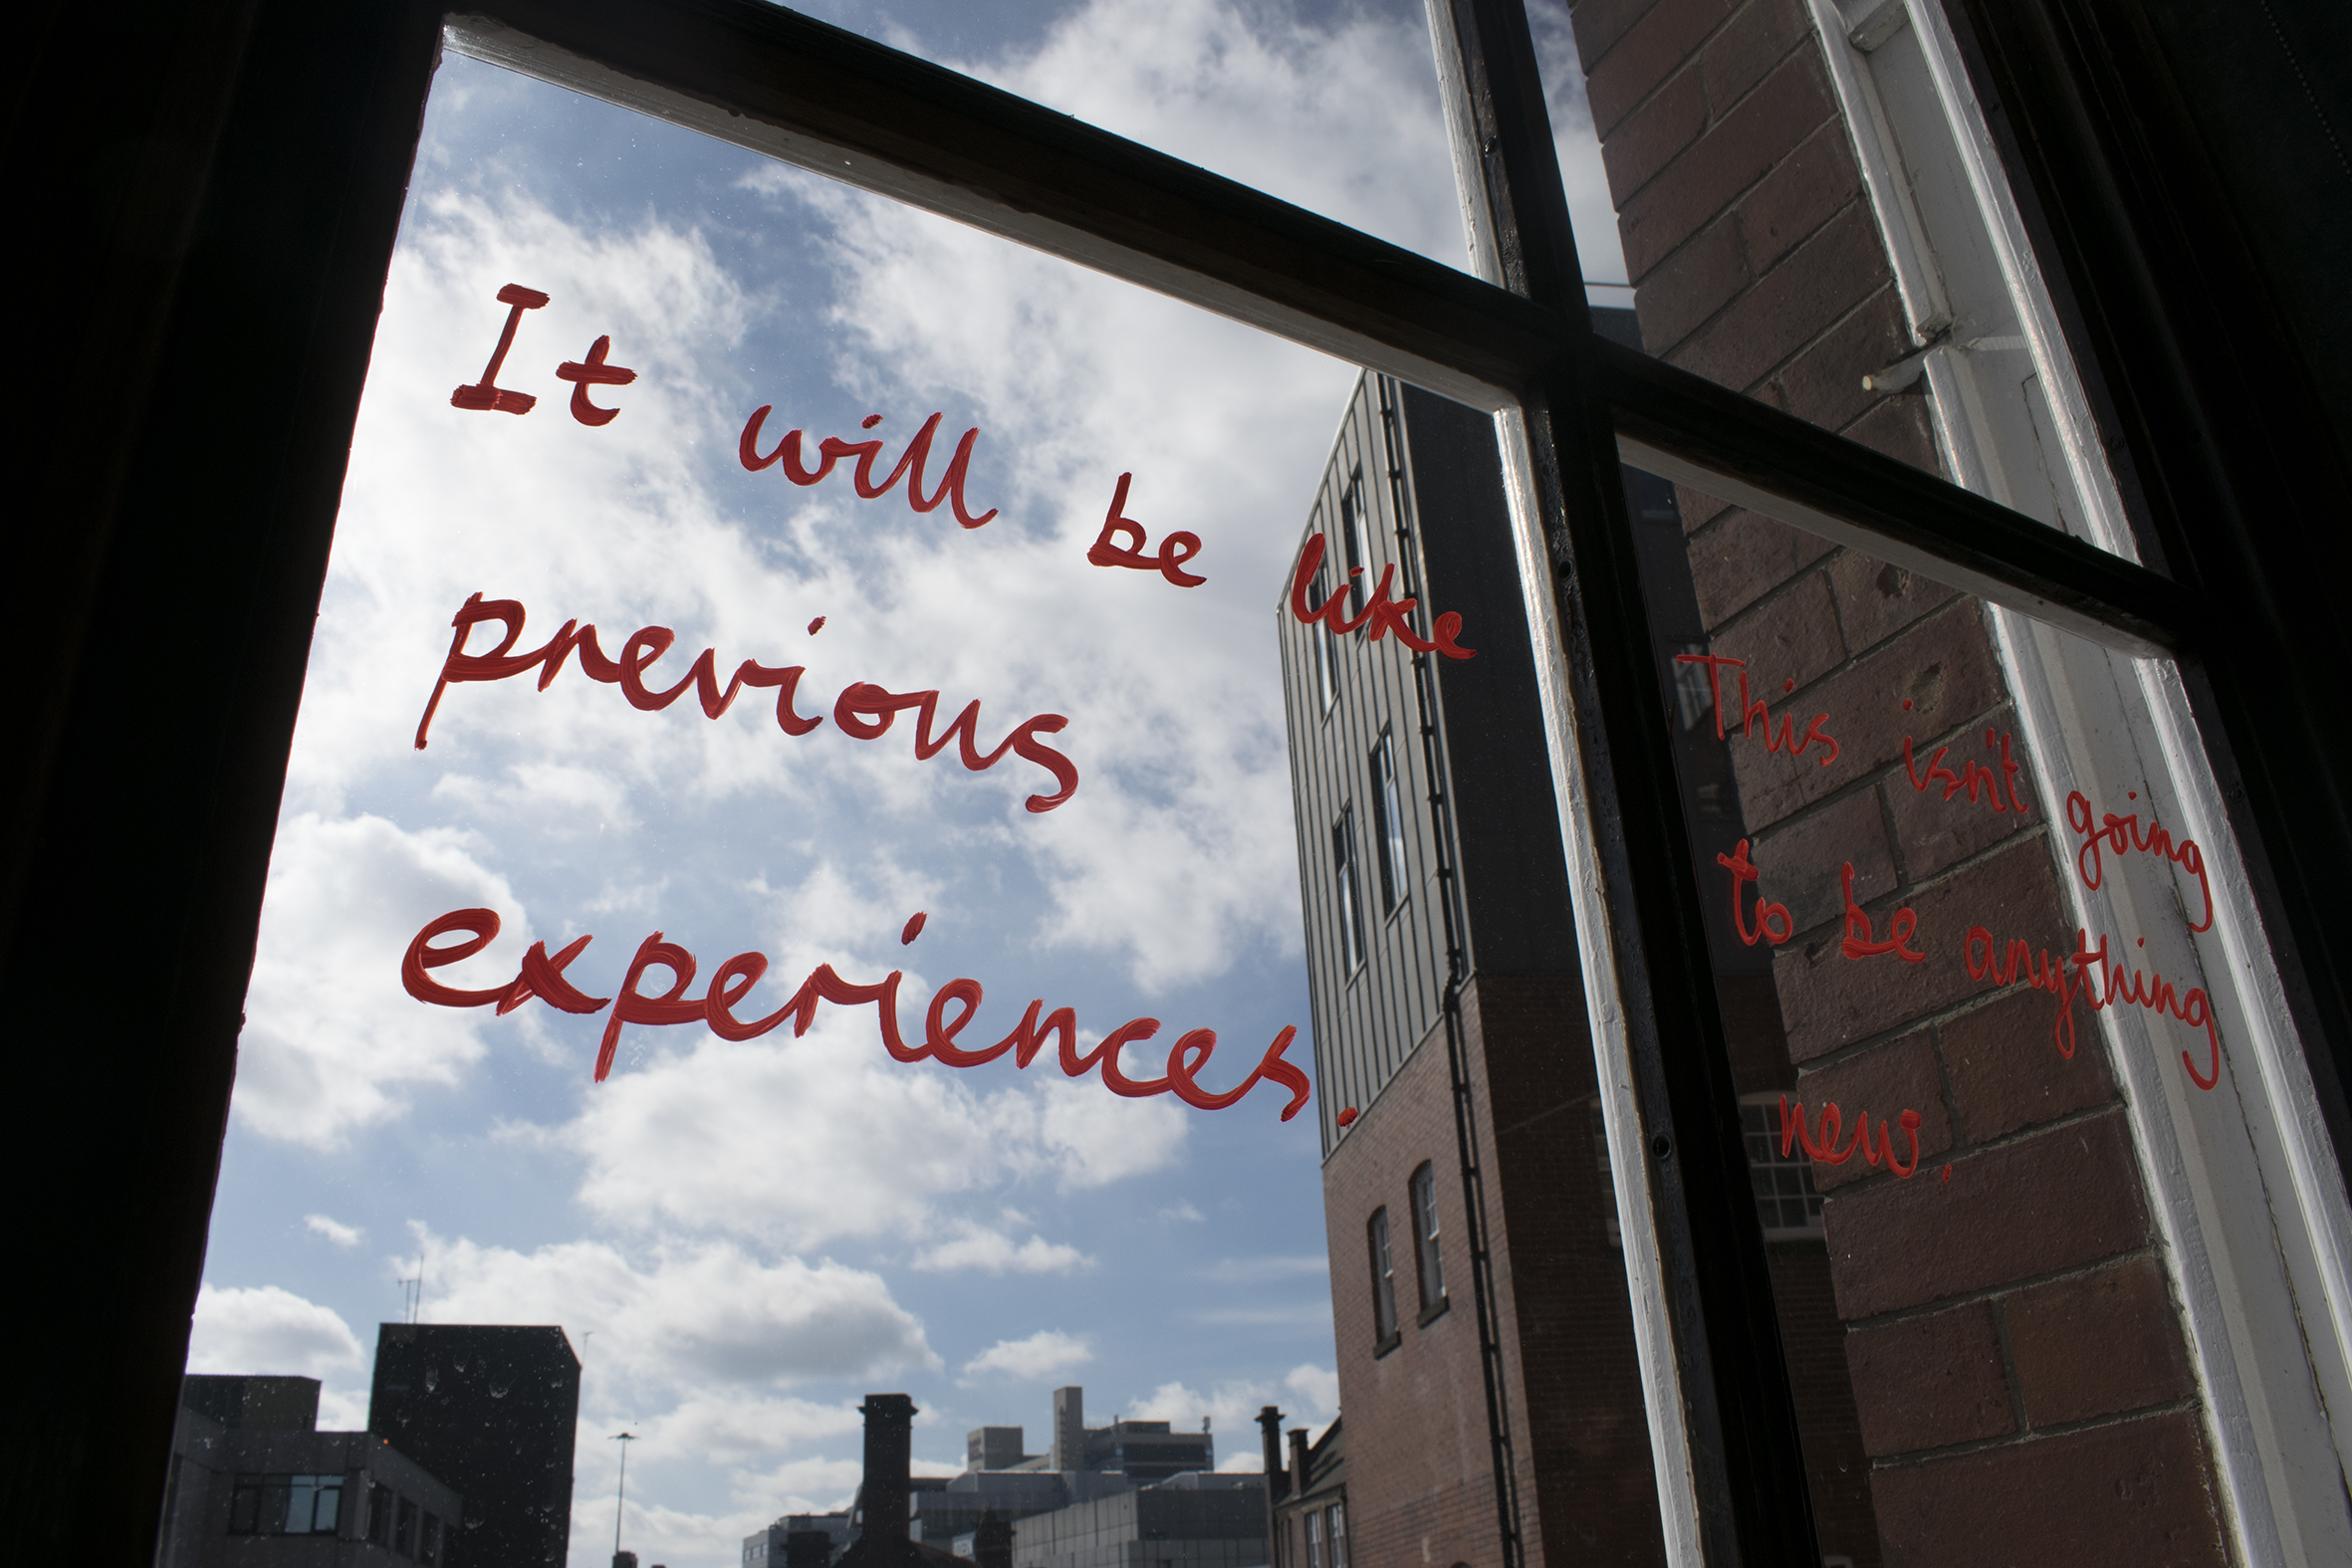 It will be like
previous
experiences.
This isn't going
to be anything
new.